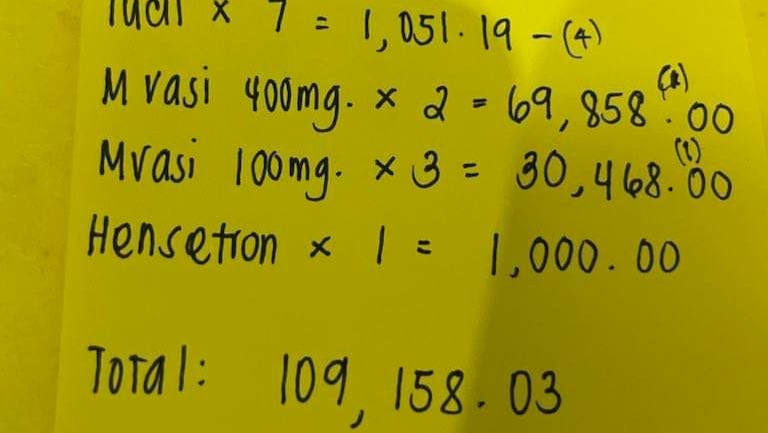 x 7 = 1,051.19 - (4)
Mvasi 400mg. x 2 = 69,858.00
Mvasi 100mg. x 3 = 30,468.00 (1)
Hensetron x 1 = 1,000.00
Total: 109,158.03